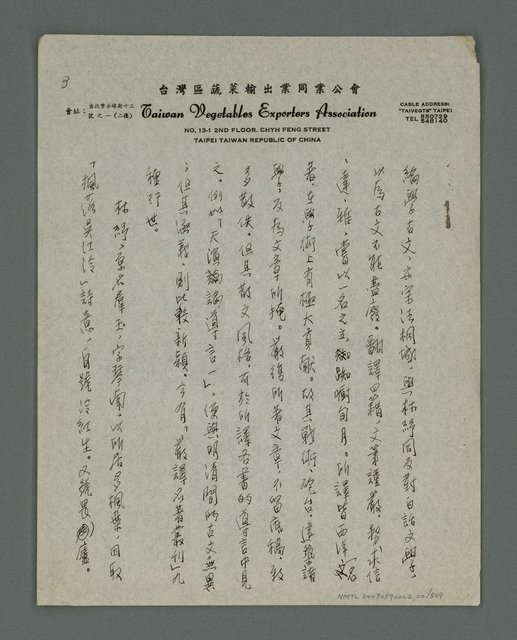 3
台灣區蔬菜輸出業同業公會
會址：台北市赤峰街十三號之一(二樓)
Taiwan Vegetables Exporters Association
CABLE ADDRESS:
"TAIVEGTS" TAIPEI
TEL 550729
546140
NO. 13-1 2ND FLOOR. CHYH FENG STREET
TAIPEI TAIWAN REPUBLIC OF CHINA
綸學古文，亦宗法桐城，與林紓同反對白話文學，
以為古文不能盡廢。翻譯西籍，文筆謹嚴，務求信
、達、雅，嘗以「一名之立，踟躕旬月。所譯皆西洋名
著，在學術上有極大貢獻。故其戰術、砲台、建築諸
學，反為文章所掩。嚴復所著文章，不留底稿，致
多散佚。但其散文風格，可於所譯各書的導言中見
之。例如「天演論導言一」，便與明清間的古文無異
，但其涵義，則比較新穎。今有「嚴譯名著叢刊」九
種行世。
林紓，原名羣玉，字琴南，以所居多楓葉，因取
「楓落吳江冷」詩意，自號冷紅生。又號畏廬。
NMTL 20070590002 20/509